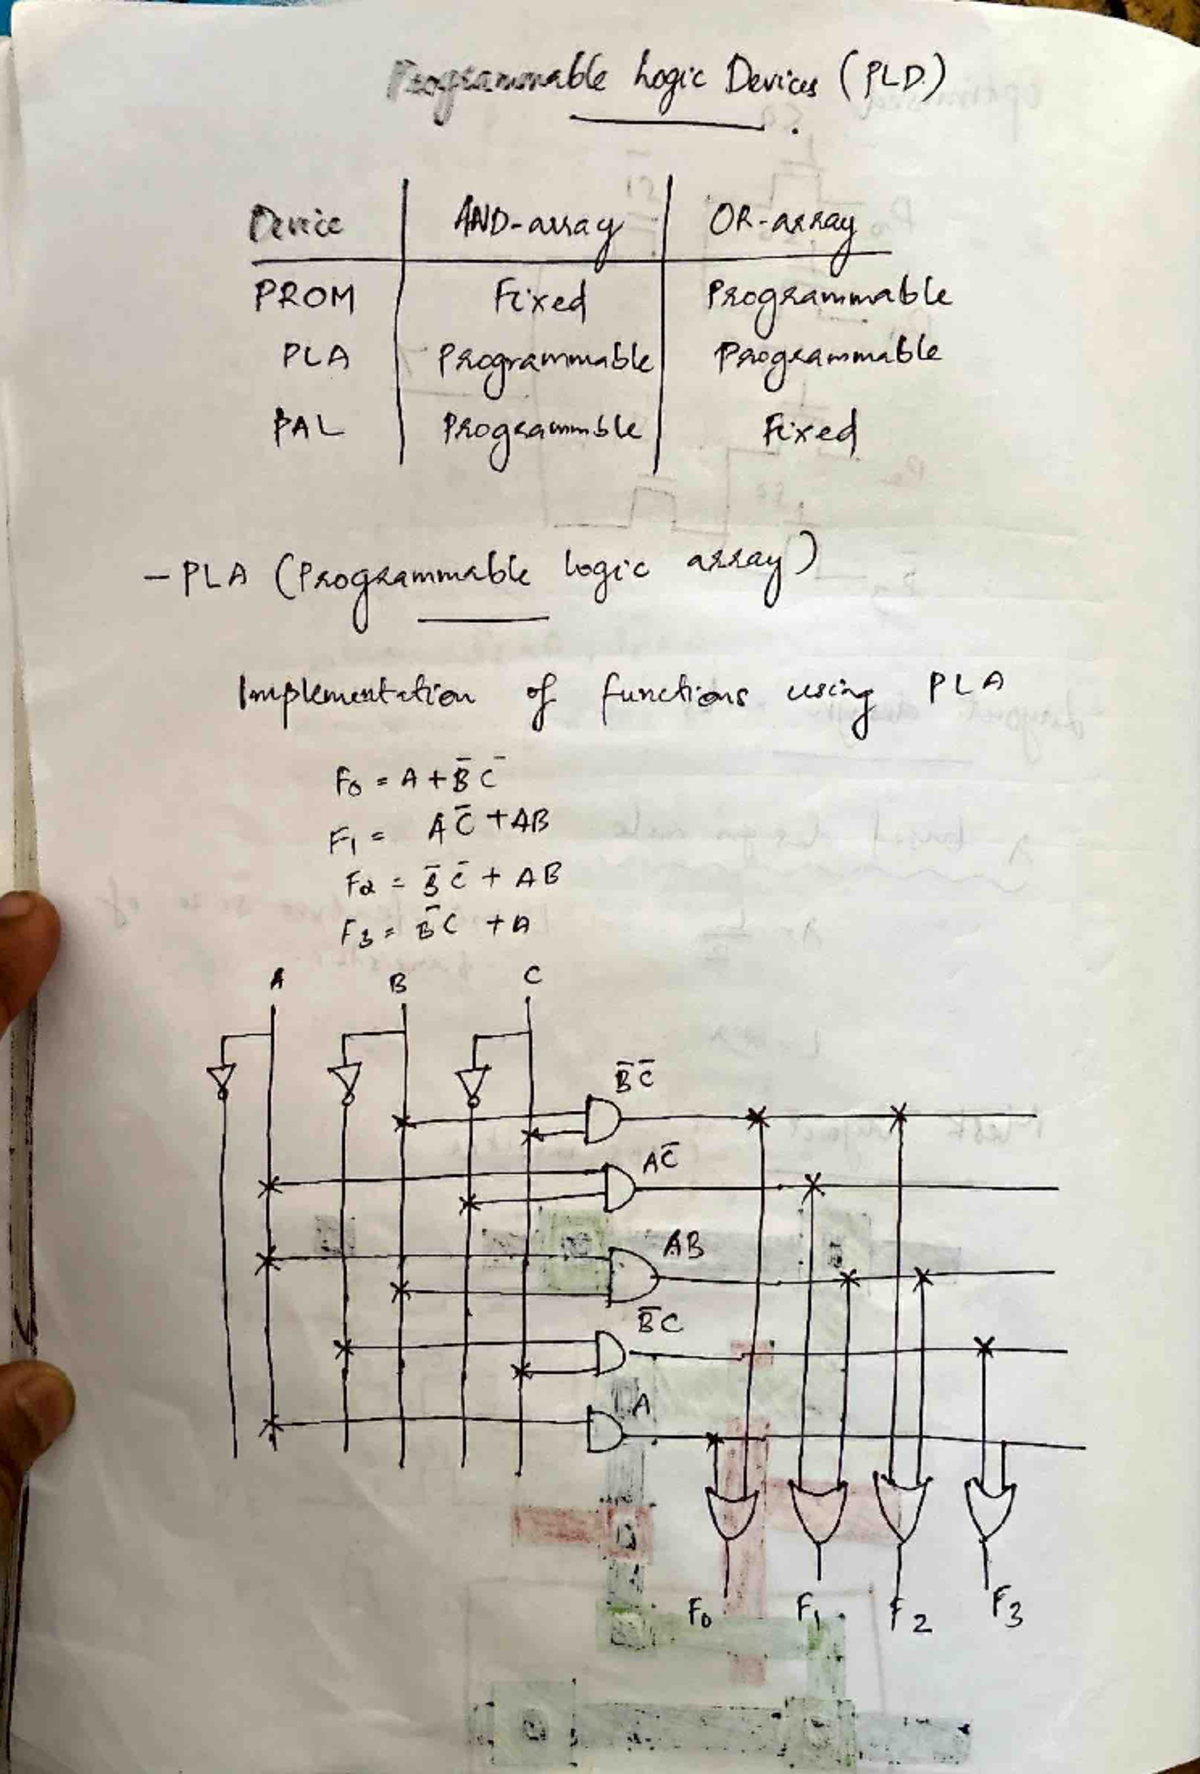 Programmable Logic Devices (PLD)
Device AND-array OR-array
PROM Fixed Programmable
PLA Programmable Programmable
PAL Programmble Fixed
- PLA (Programmable logic array)
Implementation of functions using PLA
F₀ = A + B̅ C̅
F₁ = A C̅ + AB
F₂ = B̅ C̅ + AB
F₃ = B̅ C + A
A B C
B̅ C̅
A C̅
AB
B̅ C
A
F₀ F₁ F₂ F₃